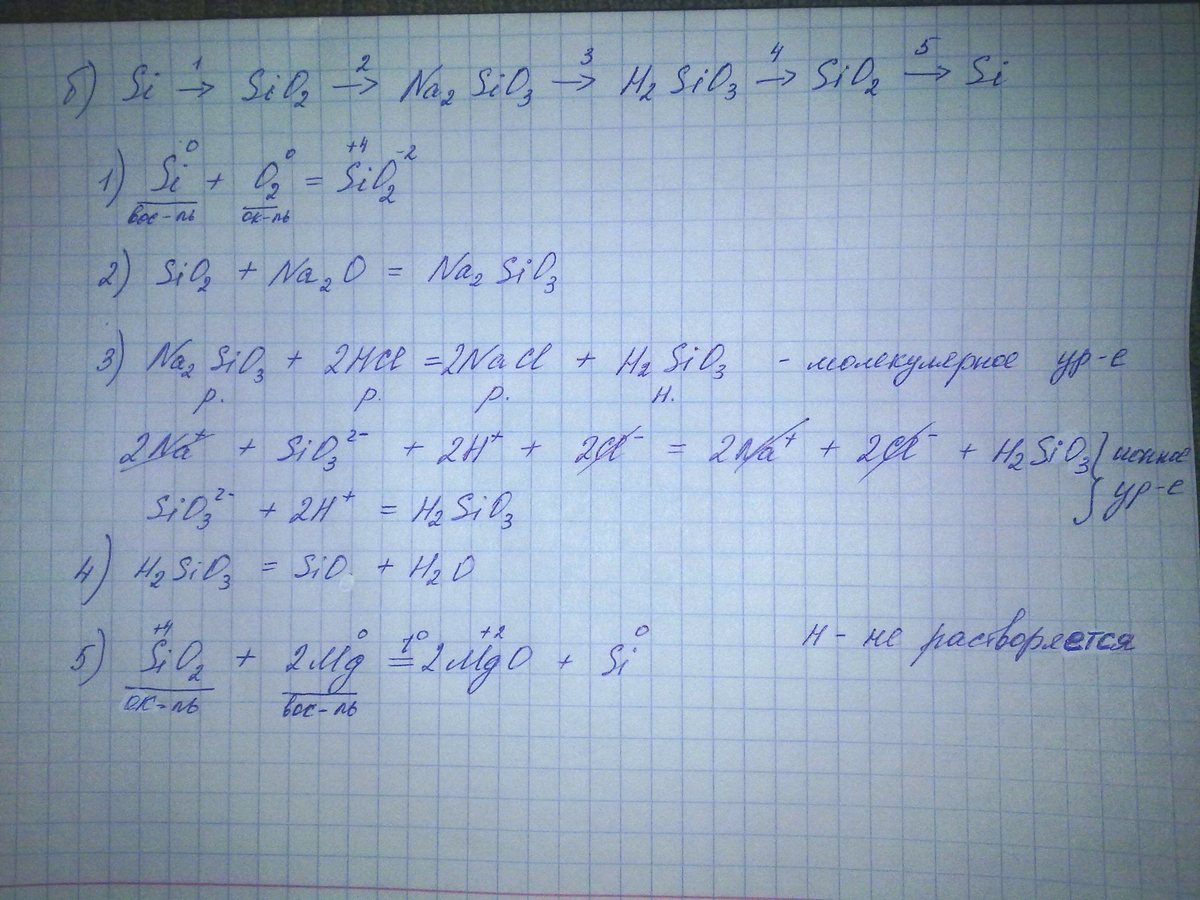 б) Si →¹ SiO₂ →² Na₂SiO₃ →³ H₂SiO₃ →⁴ SiO₂ →⁵ Si
0 0 +4 -2
1) Si + O₂ = SiO₂
вос-ль ок-ль
2) SiO₂ + Na₂O = Na₂SiO₃
3) Na₂SiO₃ + 2HCl = 2NaCl + H₂SiO₃ - молекулярное ур-е
р. р. р. н.
2Na⁺ + SiO₃²⁻ + 2H⁺ + 2Cl⁻ = 2Na⁺ + 2Cl⁻ + H₂SiO₃ } ионное
SiO₃²⁻ + 2H⁺ = H₂SiO₃ ур-е
4) H₂SiO₃ = SiO + H₂O
+4 0 t° +2 0
5) SiO₂ + 2Mg = 2MgO + Si
ок-ль вос-ль
н - не растворяется